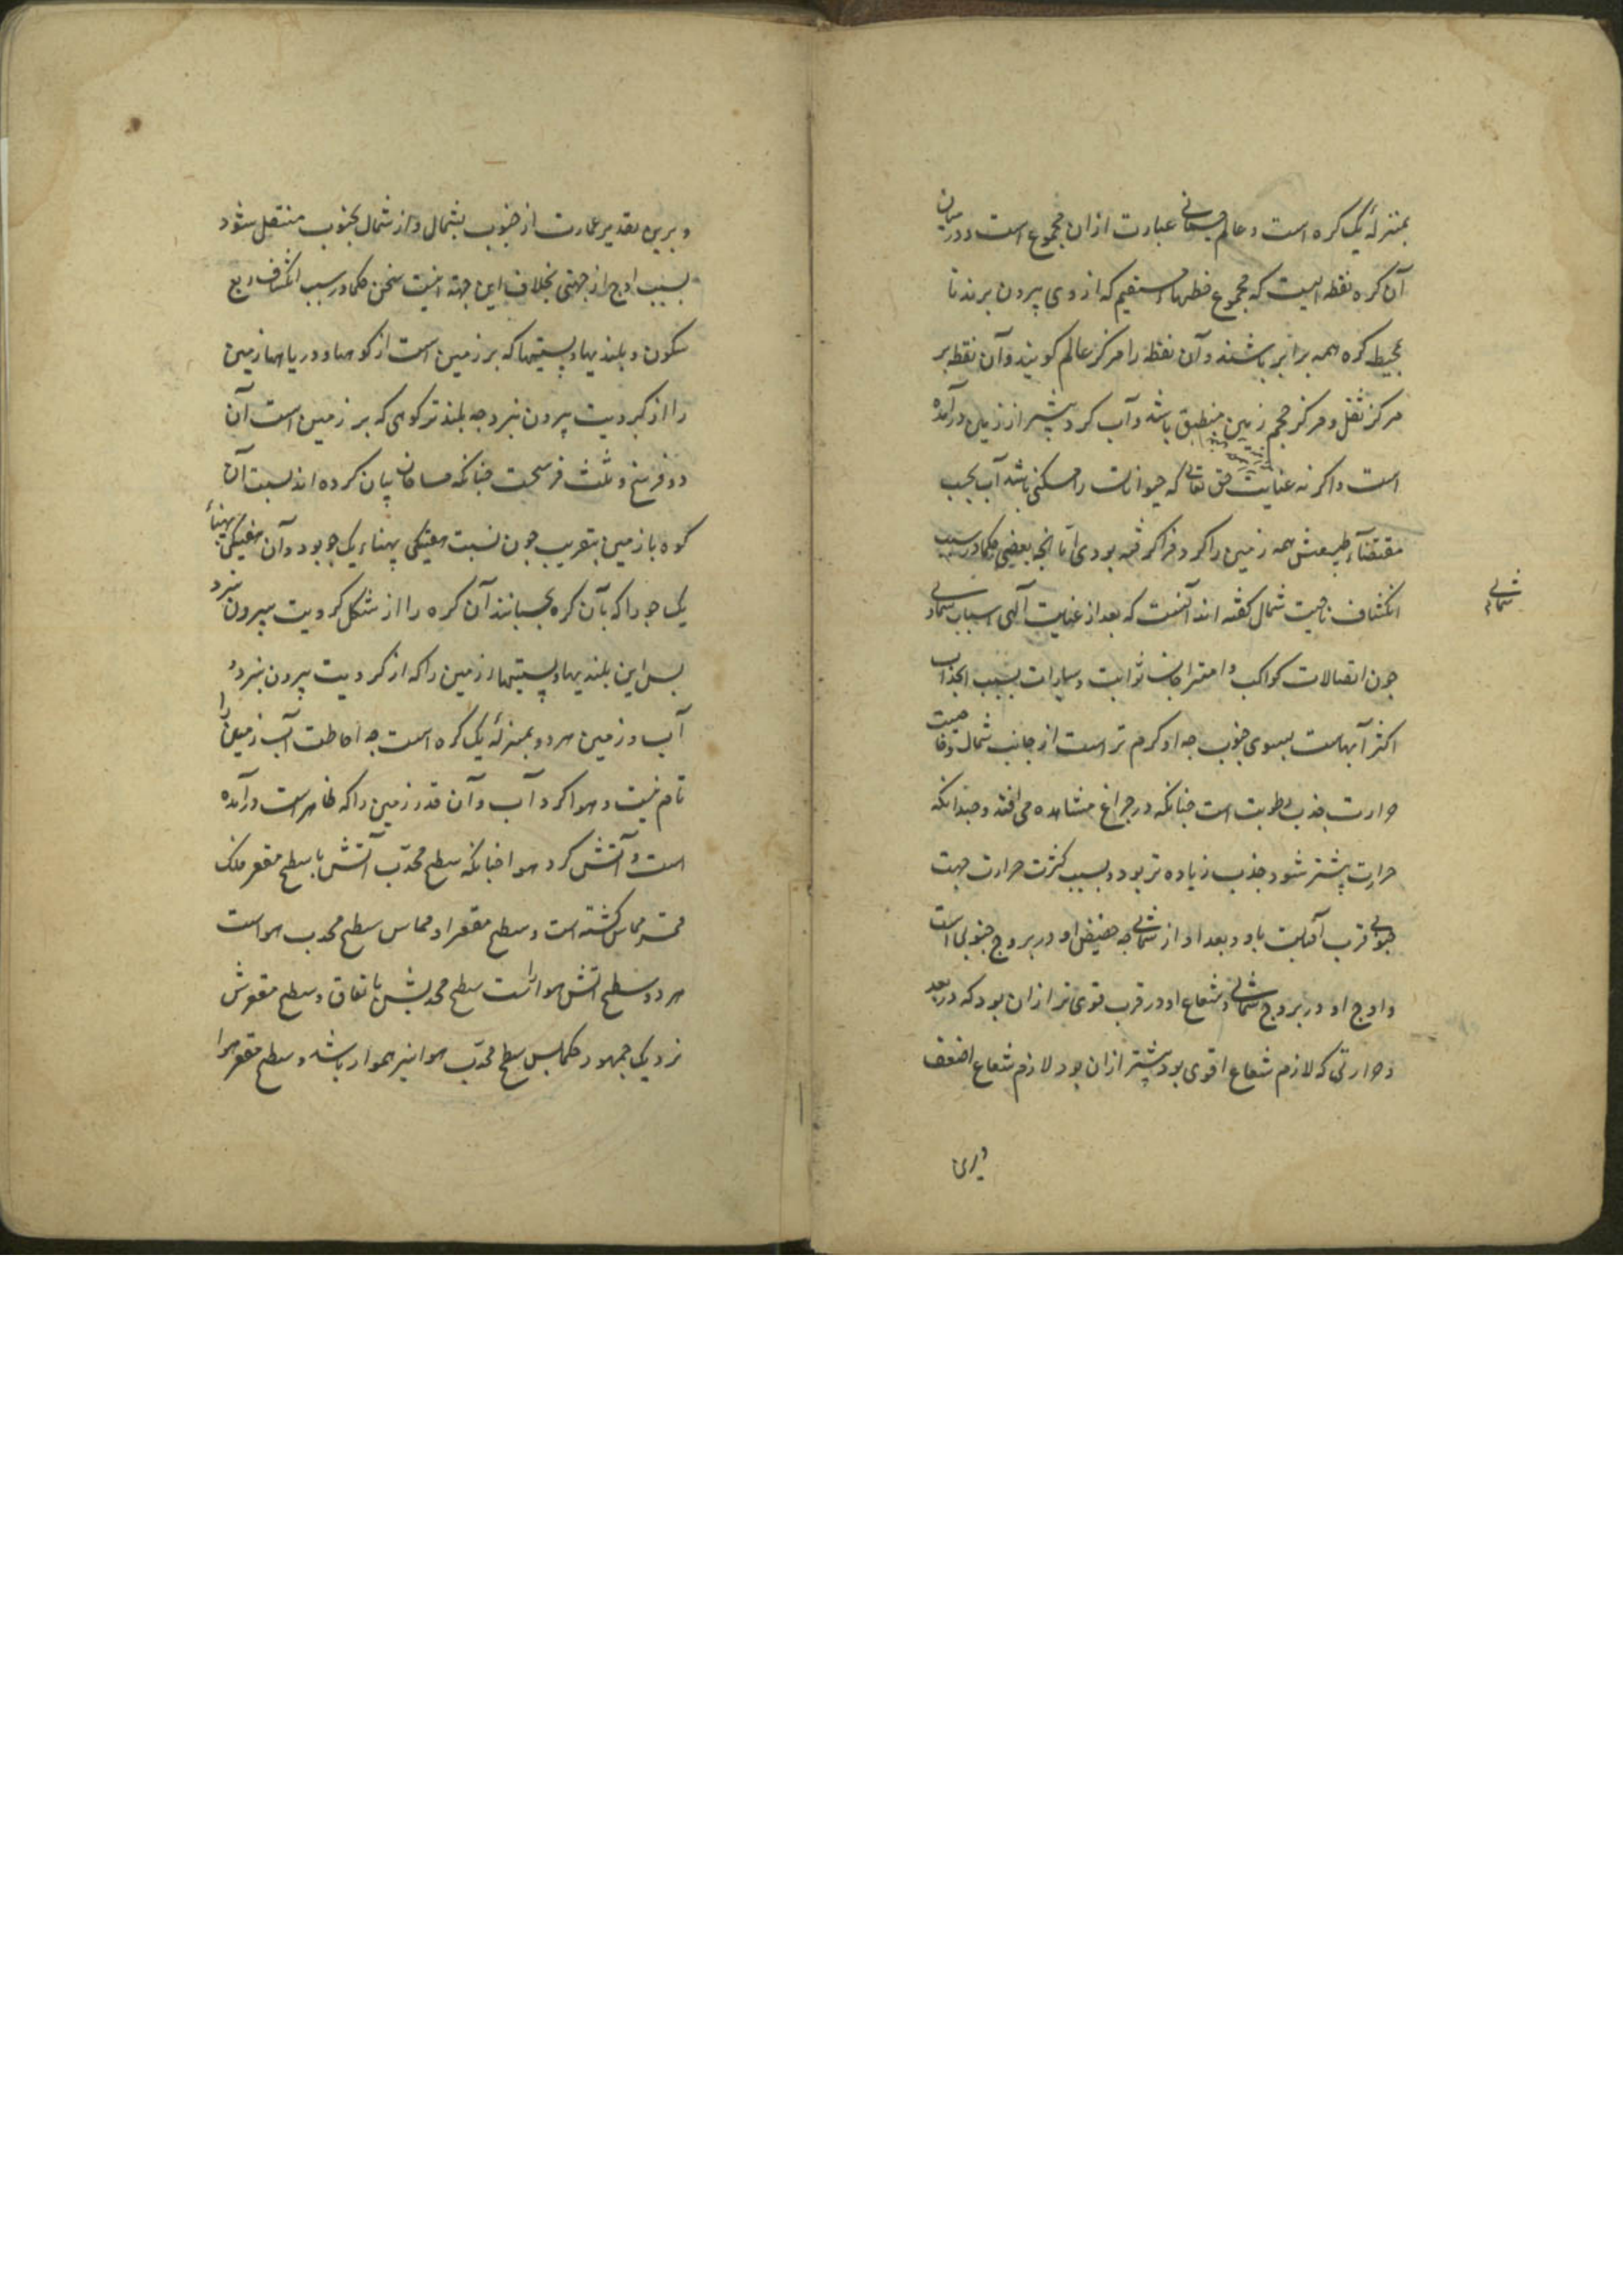 بمنزلهٔ یک کره است و عالم جسمانی عبارت ازان مجموع است و در میان
آن کره نقطه ایست که مجموع خطهاء مستقیم که از وی بیرون برند تا
محیط کره همه برابر باشند و آن نقطه را مرکز عالم کویند و آن نقطه بر
مرکز ثقل و مرکز حجم زمین منطبق باشد و آب کرد بیشتر از زمین درآمده
است و اکر نه عنایت حق تعالی که حیوانات را مسکنی باشد آب بحسب
مقتضاء طبیعتش همه زمین را کرد فرا کرفته بودی اما انچه بعضی حکما در سبب
انکشاف ناحیت شمال کفته اند آنست که بعد از عنایت آلهی اسباب سماوی
شمالی
چون اتصالات کواکب و اقترانات ثوابت و سیارات بسبب انجذاب
اکثر آبهاست بسوی جنوب چه او کرم تر است از جانب شمال و خاصیت
حرارت جذب رطوبت است چنانکه در چراغ مشاهده می افتد و چندانکه
حرارت بیشتر شود جذب زیاده تر بود و بسبب کثرت حرارت جهت
جنوبی قرب آفتابست باو و بعد او از شمالی چه حضیض او در بروج جنوبی است
و اوج او در بروج شمالی و شعاع او در قرب قوی تر ازان بود که در بعد
و حرارتی که لازم شعاع اقوی بود بیشتر ازان بود لازم شعاع اضعف
و برین
و برین تقدیر عمارت از جنوب بشمال و از شمال بجنوب منتقل شود
بسبب اوج از جهتی بخلاف این جهة اینست سخن حکما در سبب انکشاف ربع
مسکون و بلندیها و پستیها که بر زمین است از کوهها و دریاها زمین
را از کرویت بیرون نبرد چه بلندتر کوهی که بر زمین است آن
دو فرسخ و ثلث فرسخست چنانکه مساحان بیان کرده اند نسبت آن
کوه با زمین بتقریب چون نسبت هفتیکی پهناء یک جو بود و آن هفتیکی پهناء
یک جو را که بآن کره بچسبانند آن کره را از شکل کرویت بیرون نبرد
پس این بلندیها و پستیها زمین را که از کرویت بیرون نبرد و
آب و زمین هر دو بمنزلهٔ یک کره است چه احاطت آب زمین را
تام نیست و هوا کرد آب و آن قدر زمین را که ظاهرست درآمده
است و آتش کرد هوا چنانکه سطح محدب آتش با سطح مقعر فلک
قمر مماس کشته است و سطح مقعر او مماس سطح محدب هواست
هر دو سطح آتش هموارست سطح محدبش باتفاق و سطح مقعرش
نزدیک جمهور حکما پس سطح محدب هوا نیز هموار باشد و سطح مقعر هوا